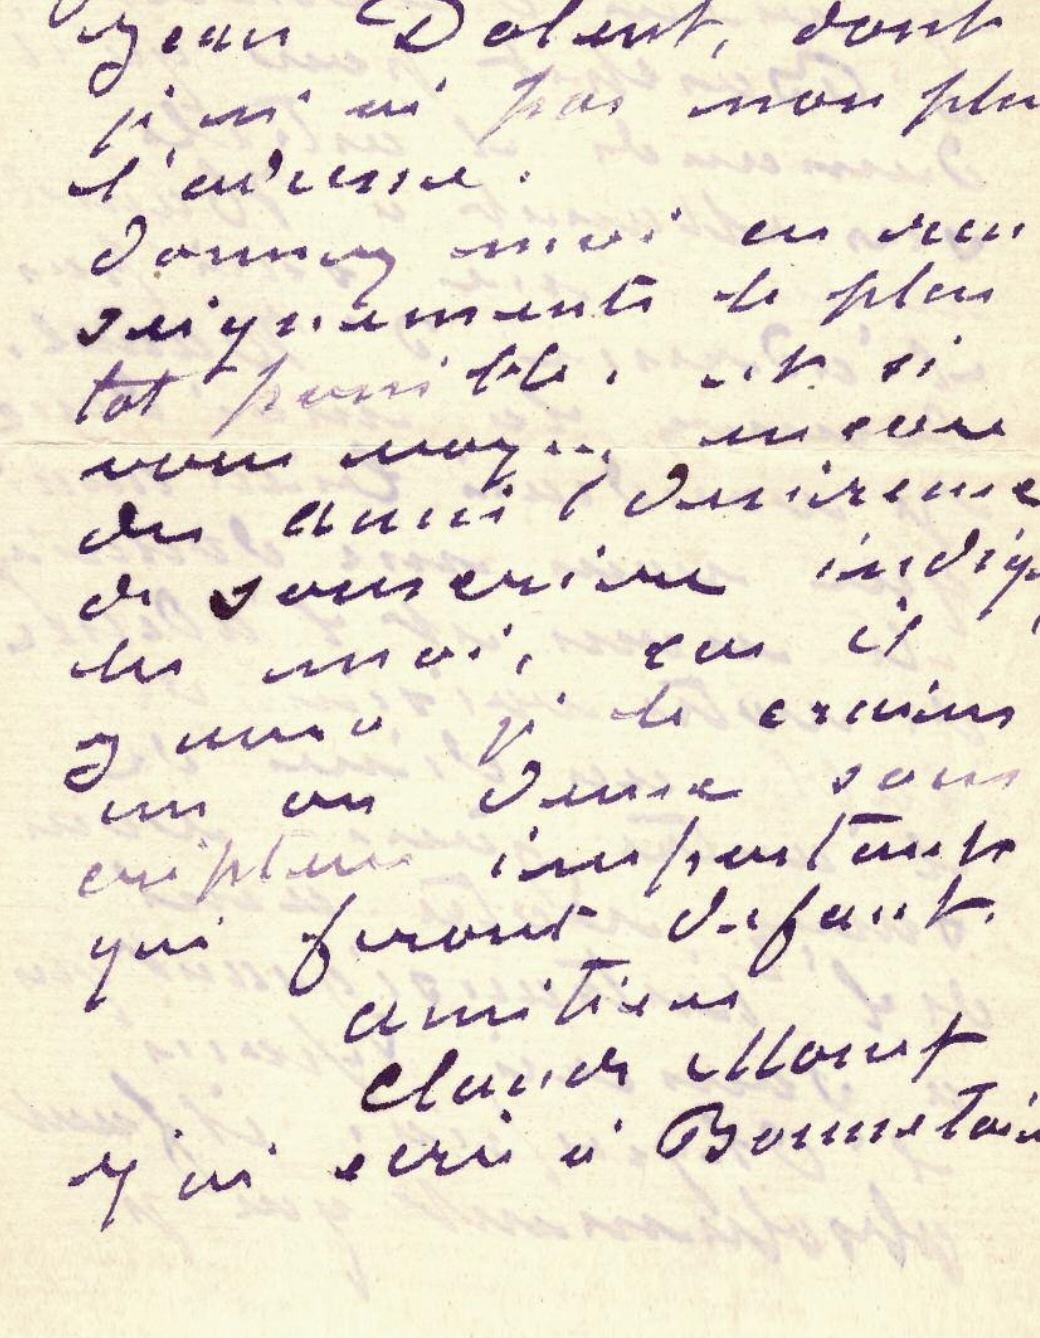 Jean Dolent, dont
je n'ai pas non plu
l'adresse.
donnez moi ces ren
seignements le plus
tot possible. et si
vous voyez encore
des amis desireux
de souscrire indiq
les moi, car il
y aura je le crains
un ou deux sous
cripteurs importants
qui feront defaut.
amities
Claude Monet
J'ai ecris à Bonnetain